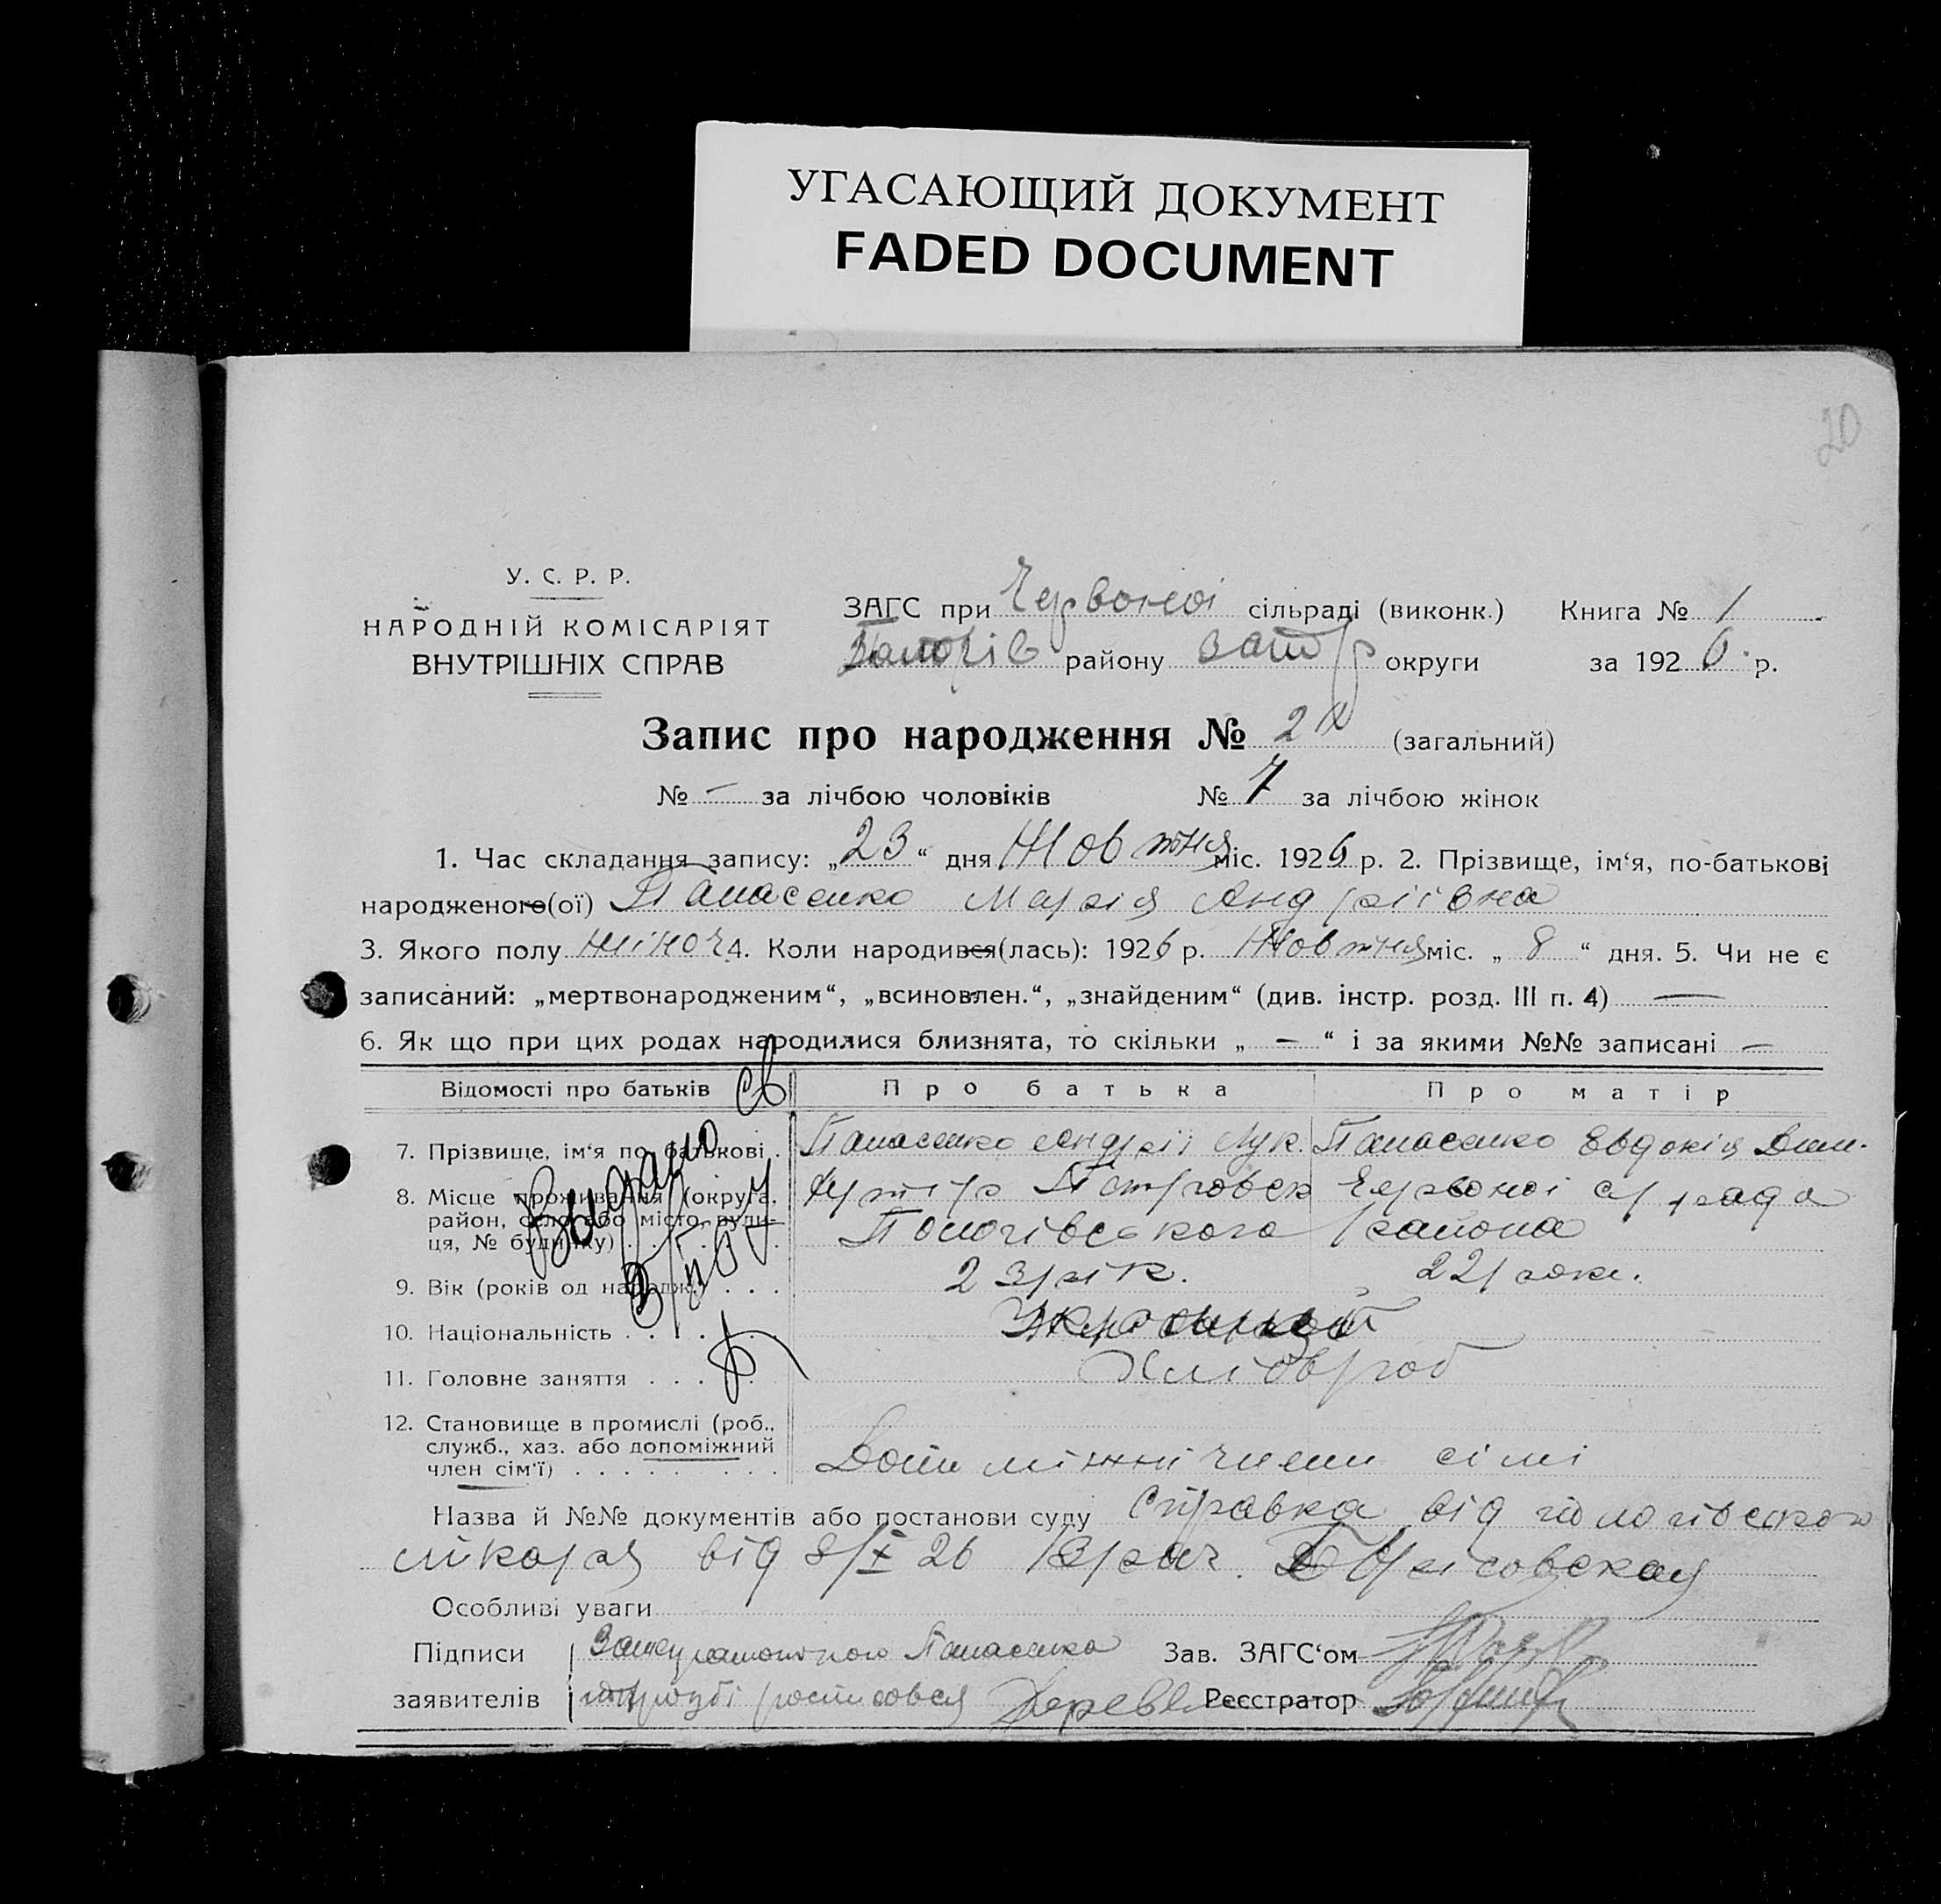 УГАСАЮЩИЙ ДОКУМЕНТ
FADED DOCUMENT
20
У. С. Р. Р.
НАРОДНІЙ КОМІСАРІЯТ
ВНУТРІШНІХ СПРАВ
ЗАГС при Червоній сільраді (виконк.) Книга № 1
району Запор округи за 1926 р.
Запис про народження № (загальний)
№ — за лічбою чоловіків № 7 за лічбою жінок
1. Час складання запису: „23“ дня Жовтня міс. 1926 р. 2. Прізвище, ім‘я, по-батькові
народженого(ої) Панасенко Марія Андріівна
3. Якого полу жіноч 4. Коли народився(лась): 1926 р. Жовтня міс. „ 8 “ дня. 5. Чи не є
записаний: „мертвонародженим“, „всиновлен.“, „знайденим“ (див. інстр. розд. III п. 4) —
6. Як що при цих родах народилися близнята, то скільки „ — “ і за якими №№ записані —
Відомості про батьків Про батька Про матір
7. Прізвище, ім‘я по батькові . Панасенко Андрій Лук. Панасенко Евдокія Дми.
8. Місце проживання (округа, хутір Петровск Червоної с/рада
район, село або місто, вули-
ця, № будинку) . . . . Пологівського района
9. Вік (років од народж.) . . . 23 рік. 22 роки.
10. Національність . . . . .
11. Головне заняття . . . . Хлібороб
12. Становище в промислі (роб.,
служб., хаз. або допоміжний
член сім‘ї) . . . . . . . Допоміжні члени сімі
Назва й №№ документів або постанови суду Справка від пологівского
лікаря від 8/X 26 Врач. Борисовская
Особливі уваги
Підписи Панасенко Зав. ЗАГС‘ом
заявителів росписовся Реєстратор
Выдано